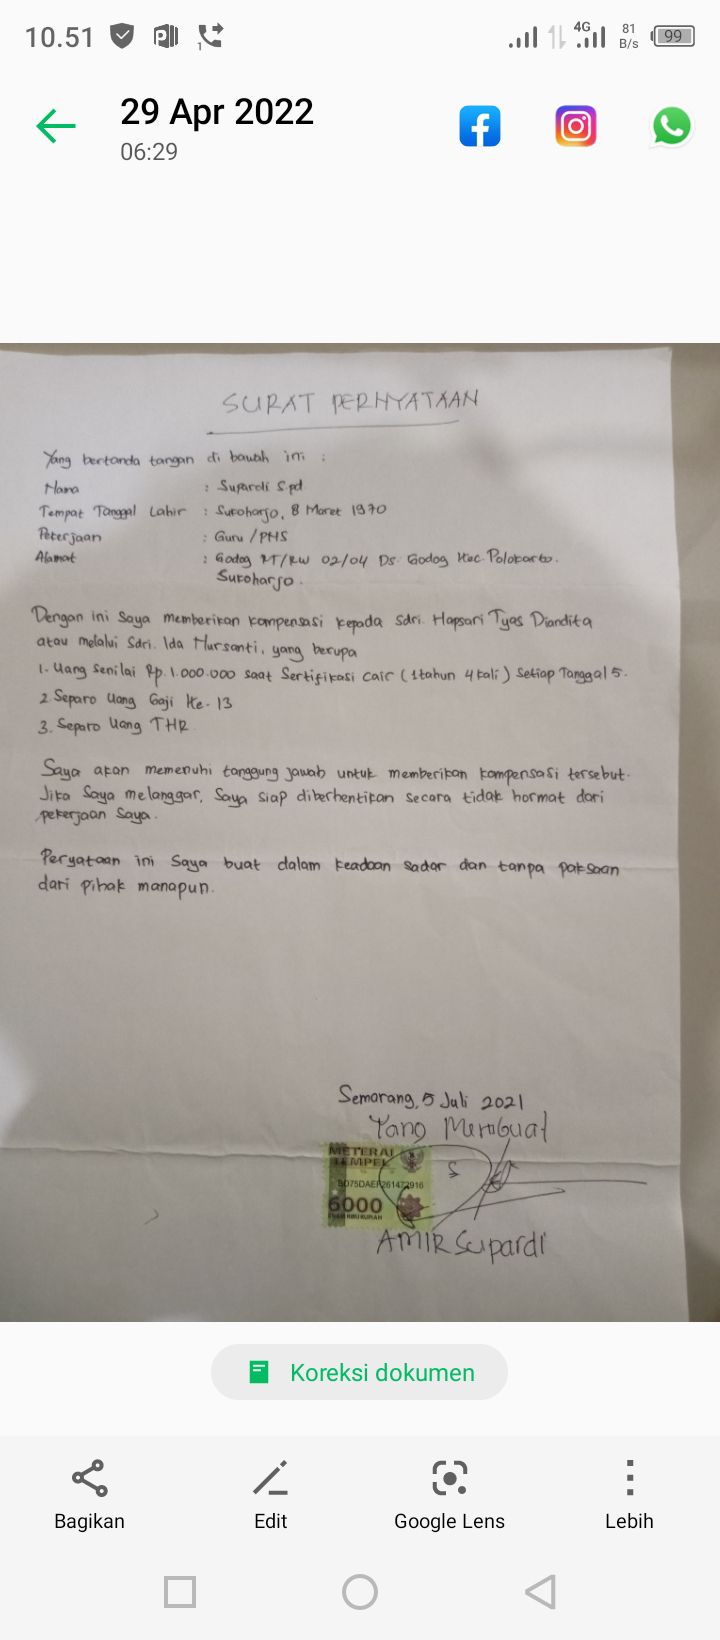 10.51
1
4G
81
B/s
99
29 Apr 2022
06:29
SURAT PERNYATAAN
Yang bertanda tangan di bawah ini :
Nama : Supardi S.pd
Tempat Tanggal Lahir : Sukoharjo, 8 Maret 1970
Pekerjaan : Guru / PNS
Alamat : Godog RT/RW 02/04 Ds. Godog Kec. Polokarto.
Sukoharjo.
Dengan ini Saya memberikan kompensasi kepada Sdri. Hapsari Tyas Diandita
atau melalui Sdri. Ida Nursanti, yang berupa
1. Uang senilai Rp. 1.000.000 saat Sertifikasi cair (1 tahun 4 kali) Setiap Tanggal 5.
2. Separo Uang Gaji Ke-13
3. Separo Uang THR
Saya akan memenuhi tanggung jawab untuk memberikan kompensasi tersebut.
Jika Saya melanggar, Saya siap diberhentikan secara tidak hormat dari
pekerjaan Saya.
Peryataan ini Saya buat dalam keadaan sadar dan tanpa paksaan
dari pihak manapun.
Semarang, 5 Juli 2021
Yang Membuat
METERAI
TEMPEL
6000
ENAM RIBU RUPIAH
AMIR Supardi
Koreksi dokumen
Bagikan
Edit
Google Lens
Lebih